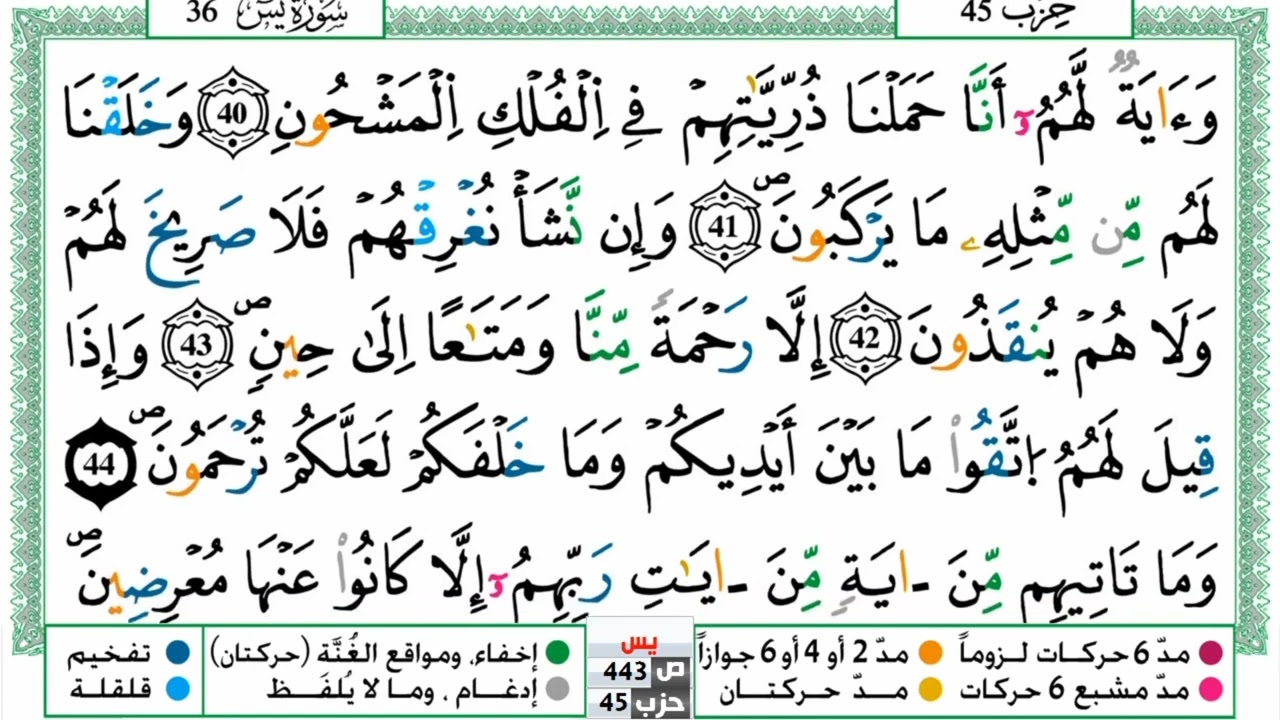 36 سُورَةُ يسٓ
حِزْب 45
وَءَايَةٞ لَّهُمُۥٓ أَنَّا حَمَلْنَا ذُرِّيَّٰتِهِمْ فِے اِ۬لْفُلْكِ اِ۬لْمَشْحُونِ 40 وَخَلَقْنَا
لَهُم مِّن مِّثْلِهِۦ مَا يَرْكَبُونَۖ 41 وَإِن نَّشَأْ نُغْرِقْهُمْ فَلَا صَرِيخَ لَهُمْ
وَلَا هُمْ يُنقَذُونَ 42 إِلَّا رَحْمَةٗ مِّنَّا وَمَتَٰعًا إِلَىٰ حِينٖۖ 43 وَإِذَا
قِيلَ لَهُمُ اُ۪تَّقُواْ مَا بَيْنَ أَيْدِيكُمْ وَمَا خَلْفَكُمْ لَعَلَّكُمْ تُرْحَمُونَۖ 44
وَمَا تَاتِيهِم مِّنَ ـَايَةٖ مِّنَ ـَايَٰتِ رَبِّهِمُۥٓ إِلَّا كَانُواْ عَنْهَا مُعْرِضِينَۖ
مدّ 6 حركات لـزوماً
مدّ 2 أو 4 أو 6 جوازاً
إخفاء، ومواقع الغُنَّة (حركتان)
تفخيم
مدّ مشبع 6 حركات
مـدّ حـركتـان
إدغـام ، ومـا لا يُلفَـظ
قلقلة
يس
ص 443
حزب 45